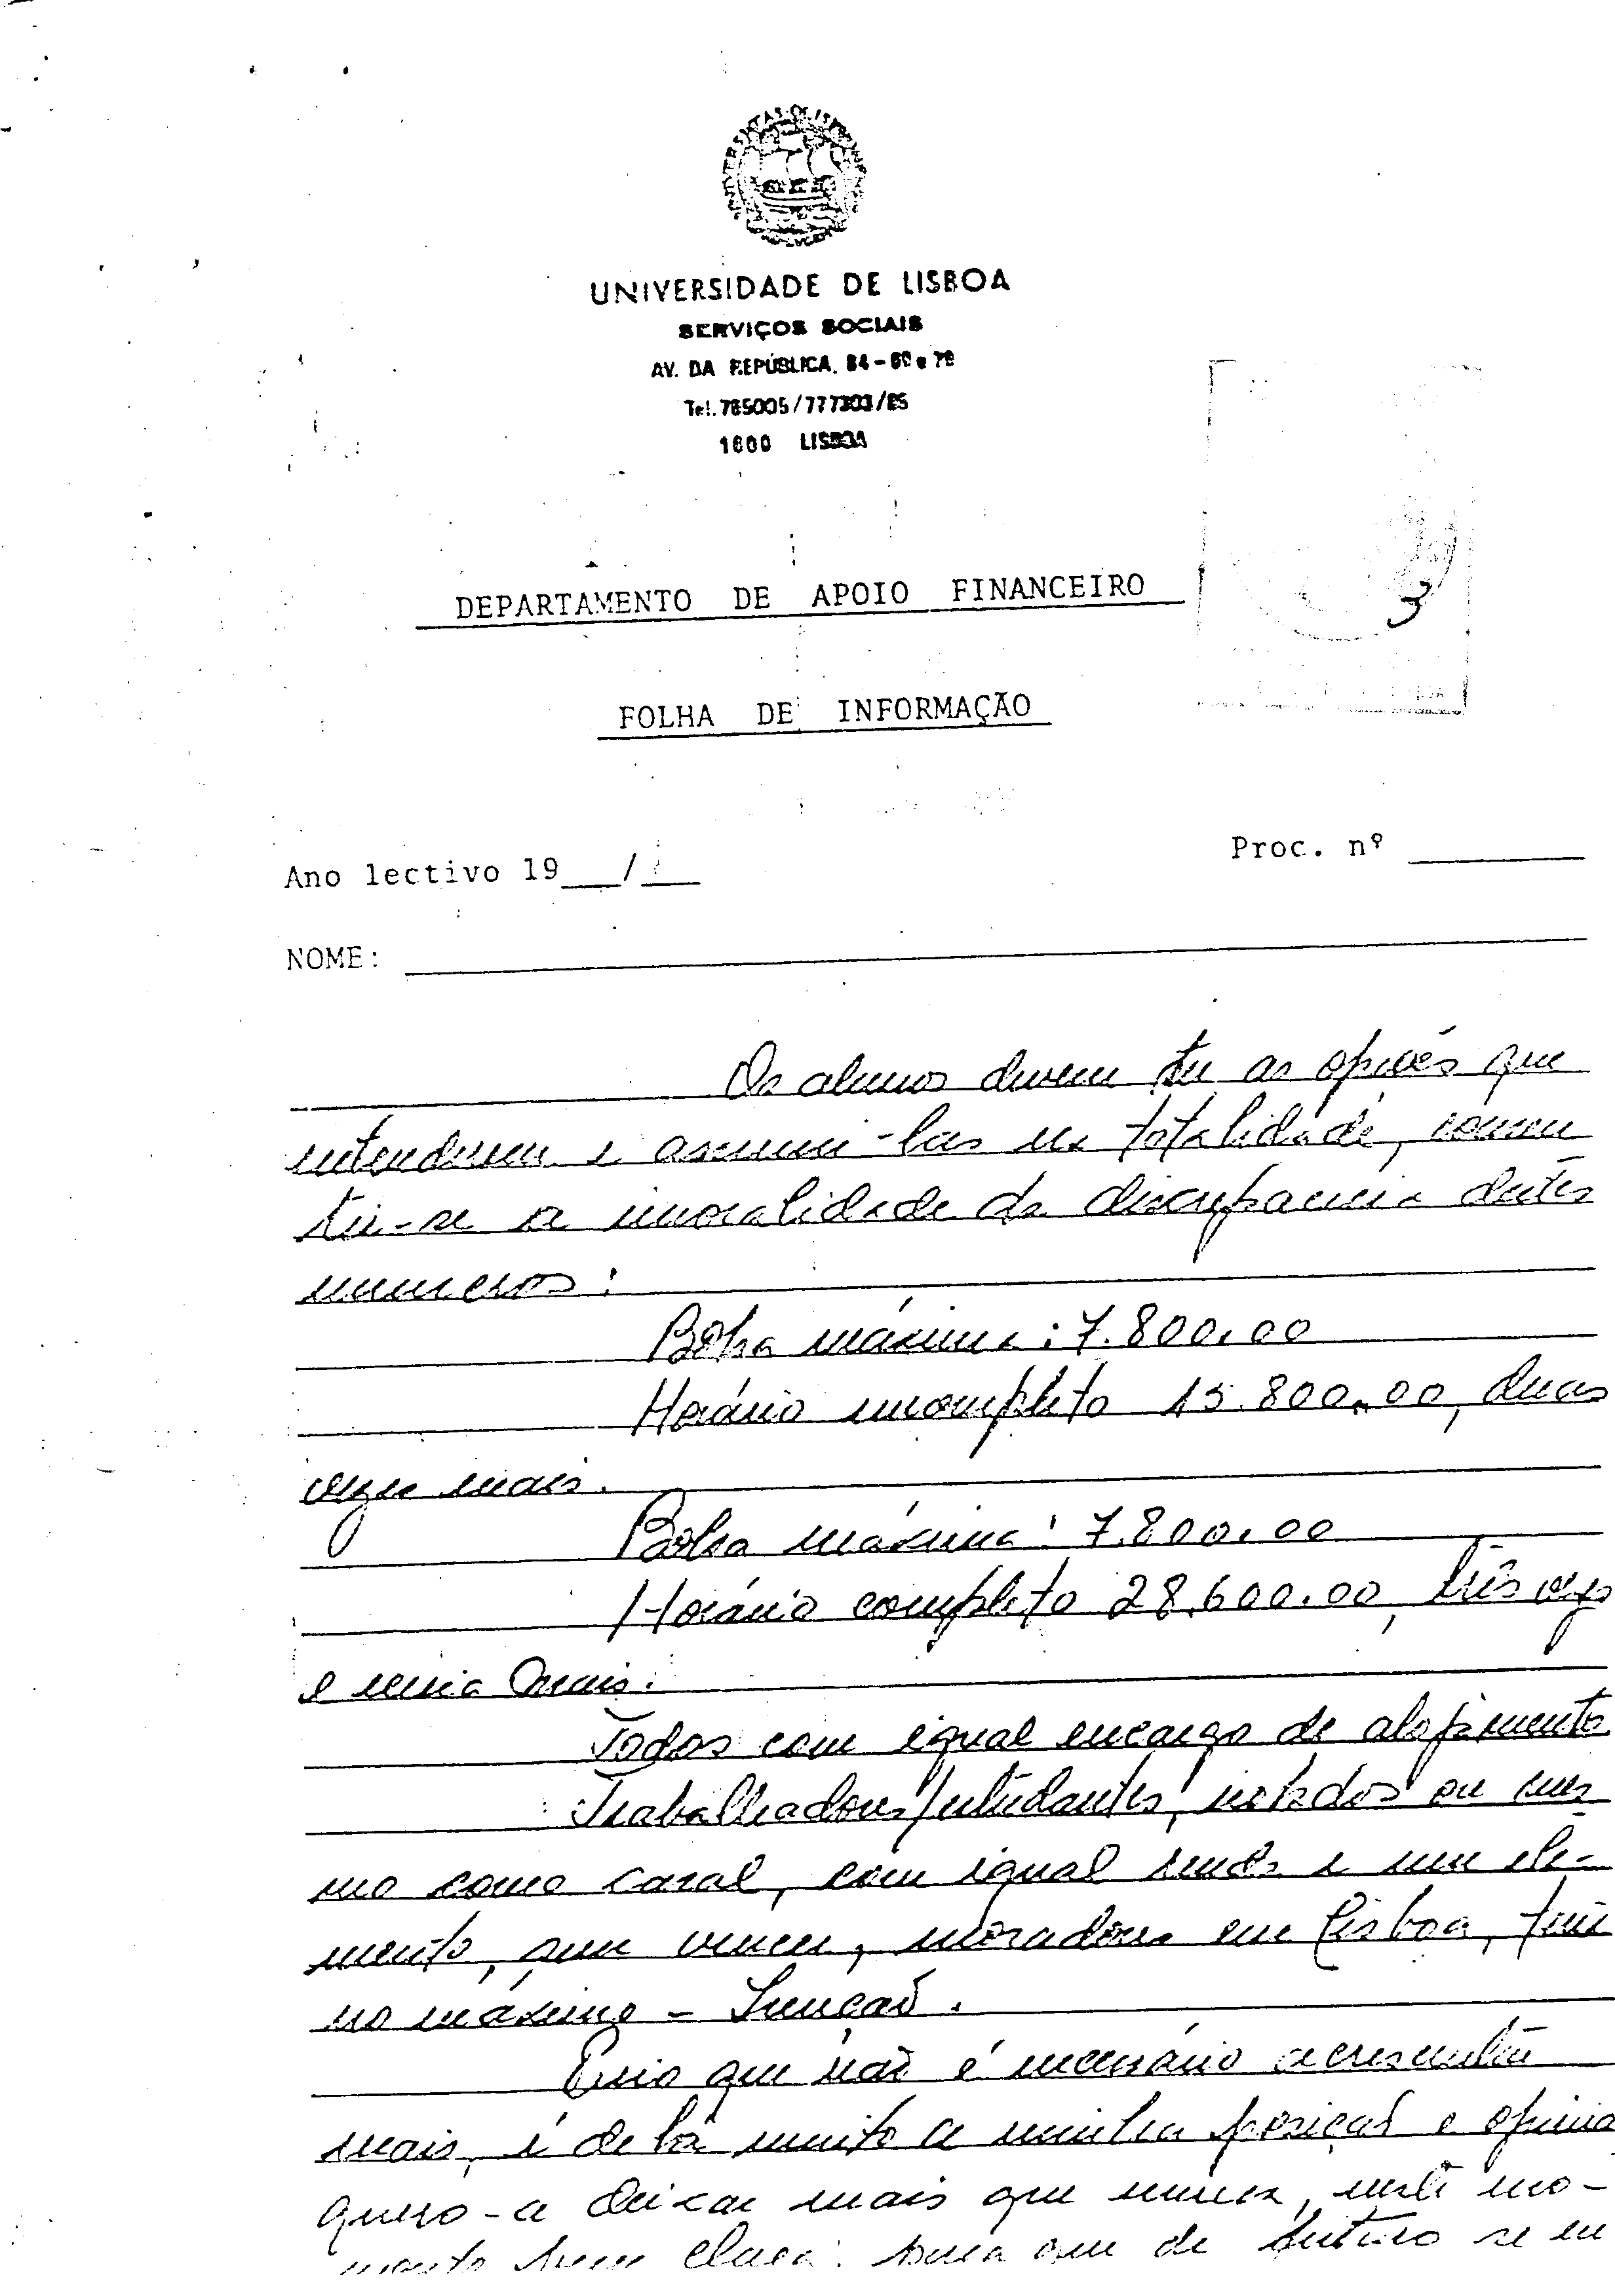 UNIVERSIDADE DE LISBOA
SERVIÇOS SOCIAIS
AV. DA REPÚBLICA, 84 - 6º e 7º
Tel. 765005 / 777303 / 85
1600 LISBOA
DEPARTAMENTO DE APOIO FINANCEIRO
3
FOLHA DE INFORMAÇÃO
Proc. nº
Ano lectivo 19 /
NOME:
Os alunos devem ter as opções que
entenderem e assumi-las na totalidade,
a imoralidade da discrepancia destes
numeros:
Bolsa máxima: 7.800.00
Horário incompleto 15.800.00, duas
vezes mais.
Bolsa máxima: 7.800.00
Horário completo 28.600.00, três vezes
e meia mais.
Todos com igual encargo de alojamento
Trabalhadores/estudantes, isolados ou mes
mo como casal, com igual renda e um ele-
mento, que vence, moradores em Lisboa, tem
no máximo - Isenção.
Creio que não é necessário acrescentar
mais, é de há muito a minha posição e opinia
quero-a deixar mais que nunca, neste mo-
mento bem clara: para que de futuro se